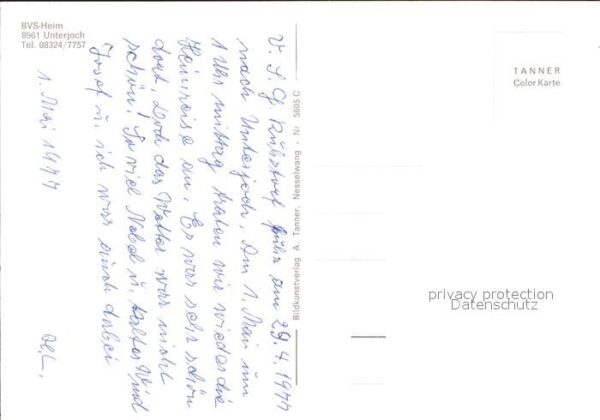 BVS-Heim
8961 Unterjoch
Tel. 08324/7757
V. S. G. fuhr am 29.4.1977
nach Unterjoch. Am 1. Mai um
1 Uhr mittag traten wir wieder die
Heimreise an. Es war sehr schön
dort. Doch das Wetter war nicht
schön! So viel Nebel u. kalter Wind
Josef u. ich war auch dabei
1. Mai 1977
Bildkunstverlag A. Tanner, Nesselwang · Nr 5605 C
TANNER
Color Karte
privacy protection
Datenschutz